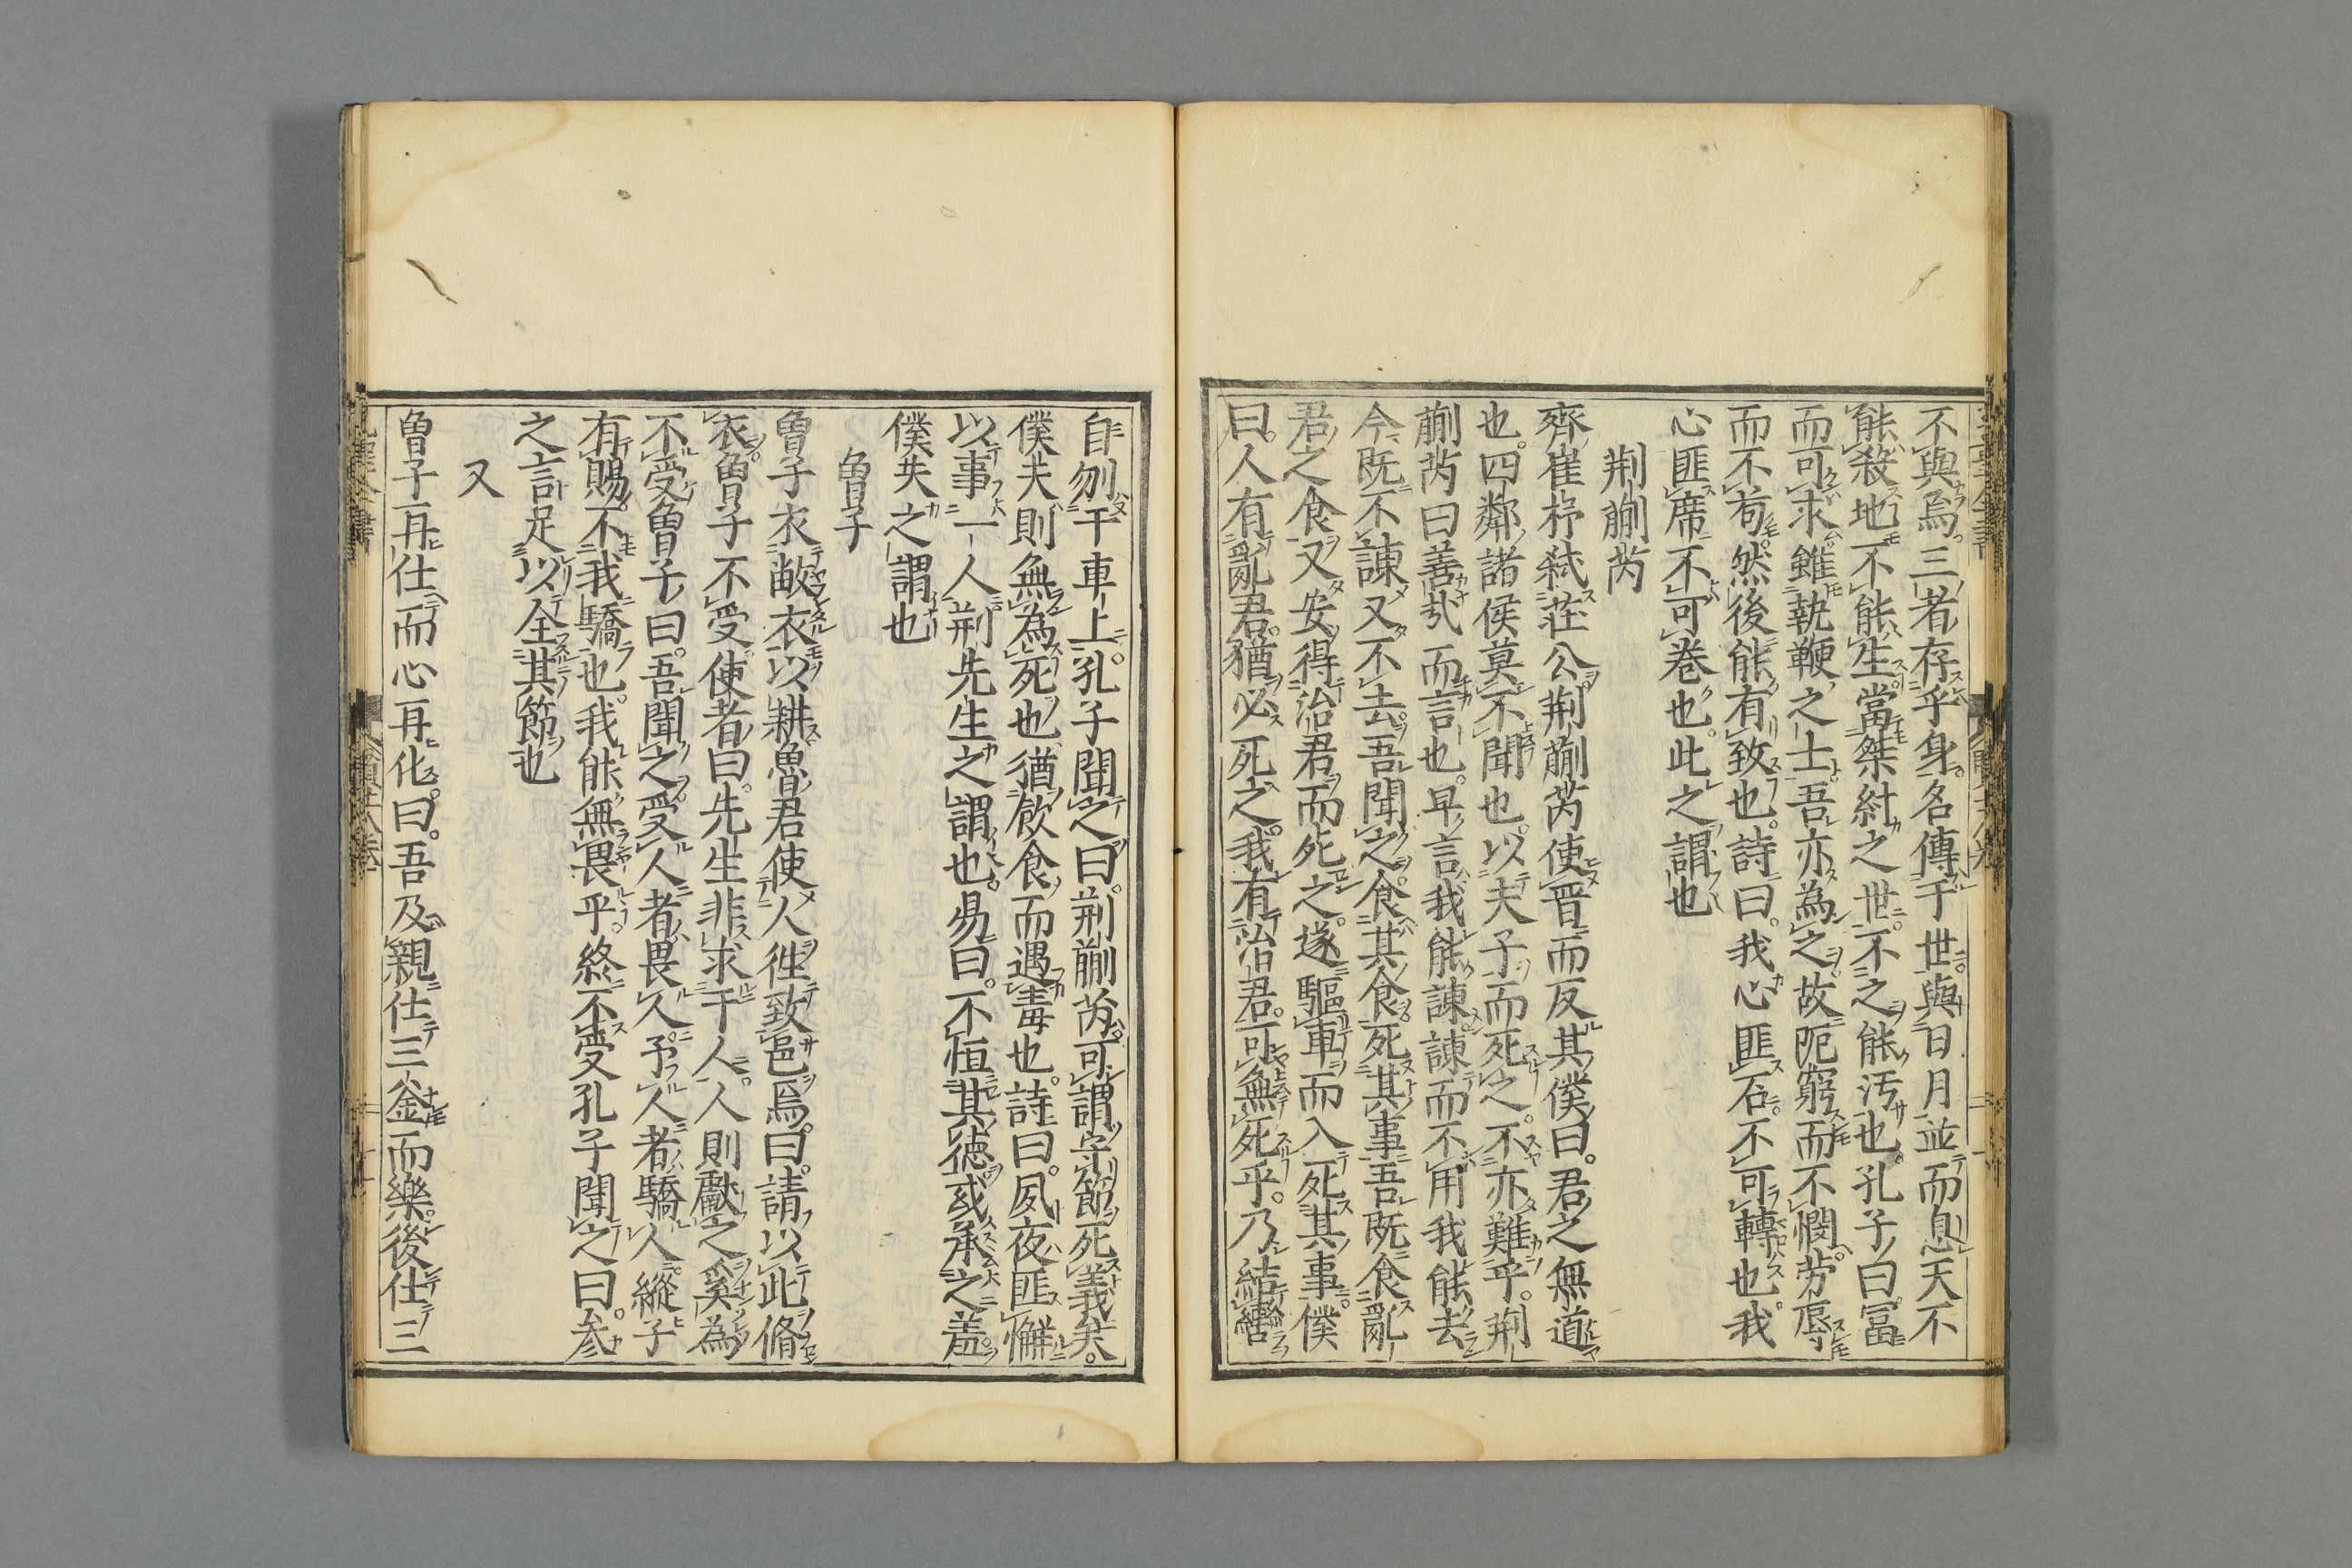 不與焉三者存乎身名傳于世與日月並而息天不
能殺地不能生當桀紂之世不之能汚也孔子曰冨
而可求雖執鞭之士吾亦為之故阨窮而不憫勞辱
而不苟然後能有致也詩曰我心匪石不可轉也我
心匪席不可巻也此之謂也
荆蒯芮
齊崔杼弑莊公荆蒯芮使晋而反其僕曰君之無道
也四鄰諸侯莫不聞也以夫子而死之不亦難乎荆
蒯芮曰善哉而言也早言我能諫諫而不用我能去
今既不諫又不去吾聞之食其食死其事吾既食亂
君之食又安得治君而死之遂驅車而入死其事僕
曰人有亂君猶必死之我有治君可無死乎乃結轡
自刎于車上孔子聞之曰荆蒯芮可謂守節死義矣
僕夫則無為死也猶飲食而遇毒也詩曰夙夜匪懈
以事一人荆先生之謂也易曰不恒其德或承之羞
僕夫之謂也
魯子
魯子衣敝衣以耕魯君使人徃致邑焉曰請以此脩
衣魯子不受使者曰先生非求于人人則獻之奚為
不受魯子曰吾聞之受人者畏人予人者驕人縱子
有賜不我驕也我能無畏乎終不受孔子聞之曰参
之言足以全其節也
又
魯子再仕而心再化曰吾及親仕三釜而樂後仕三